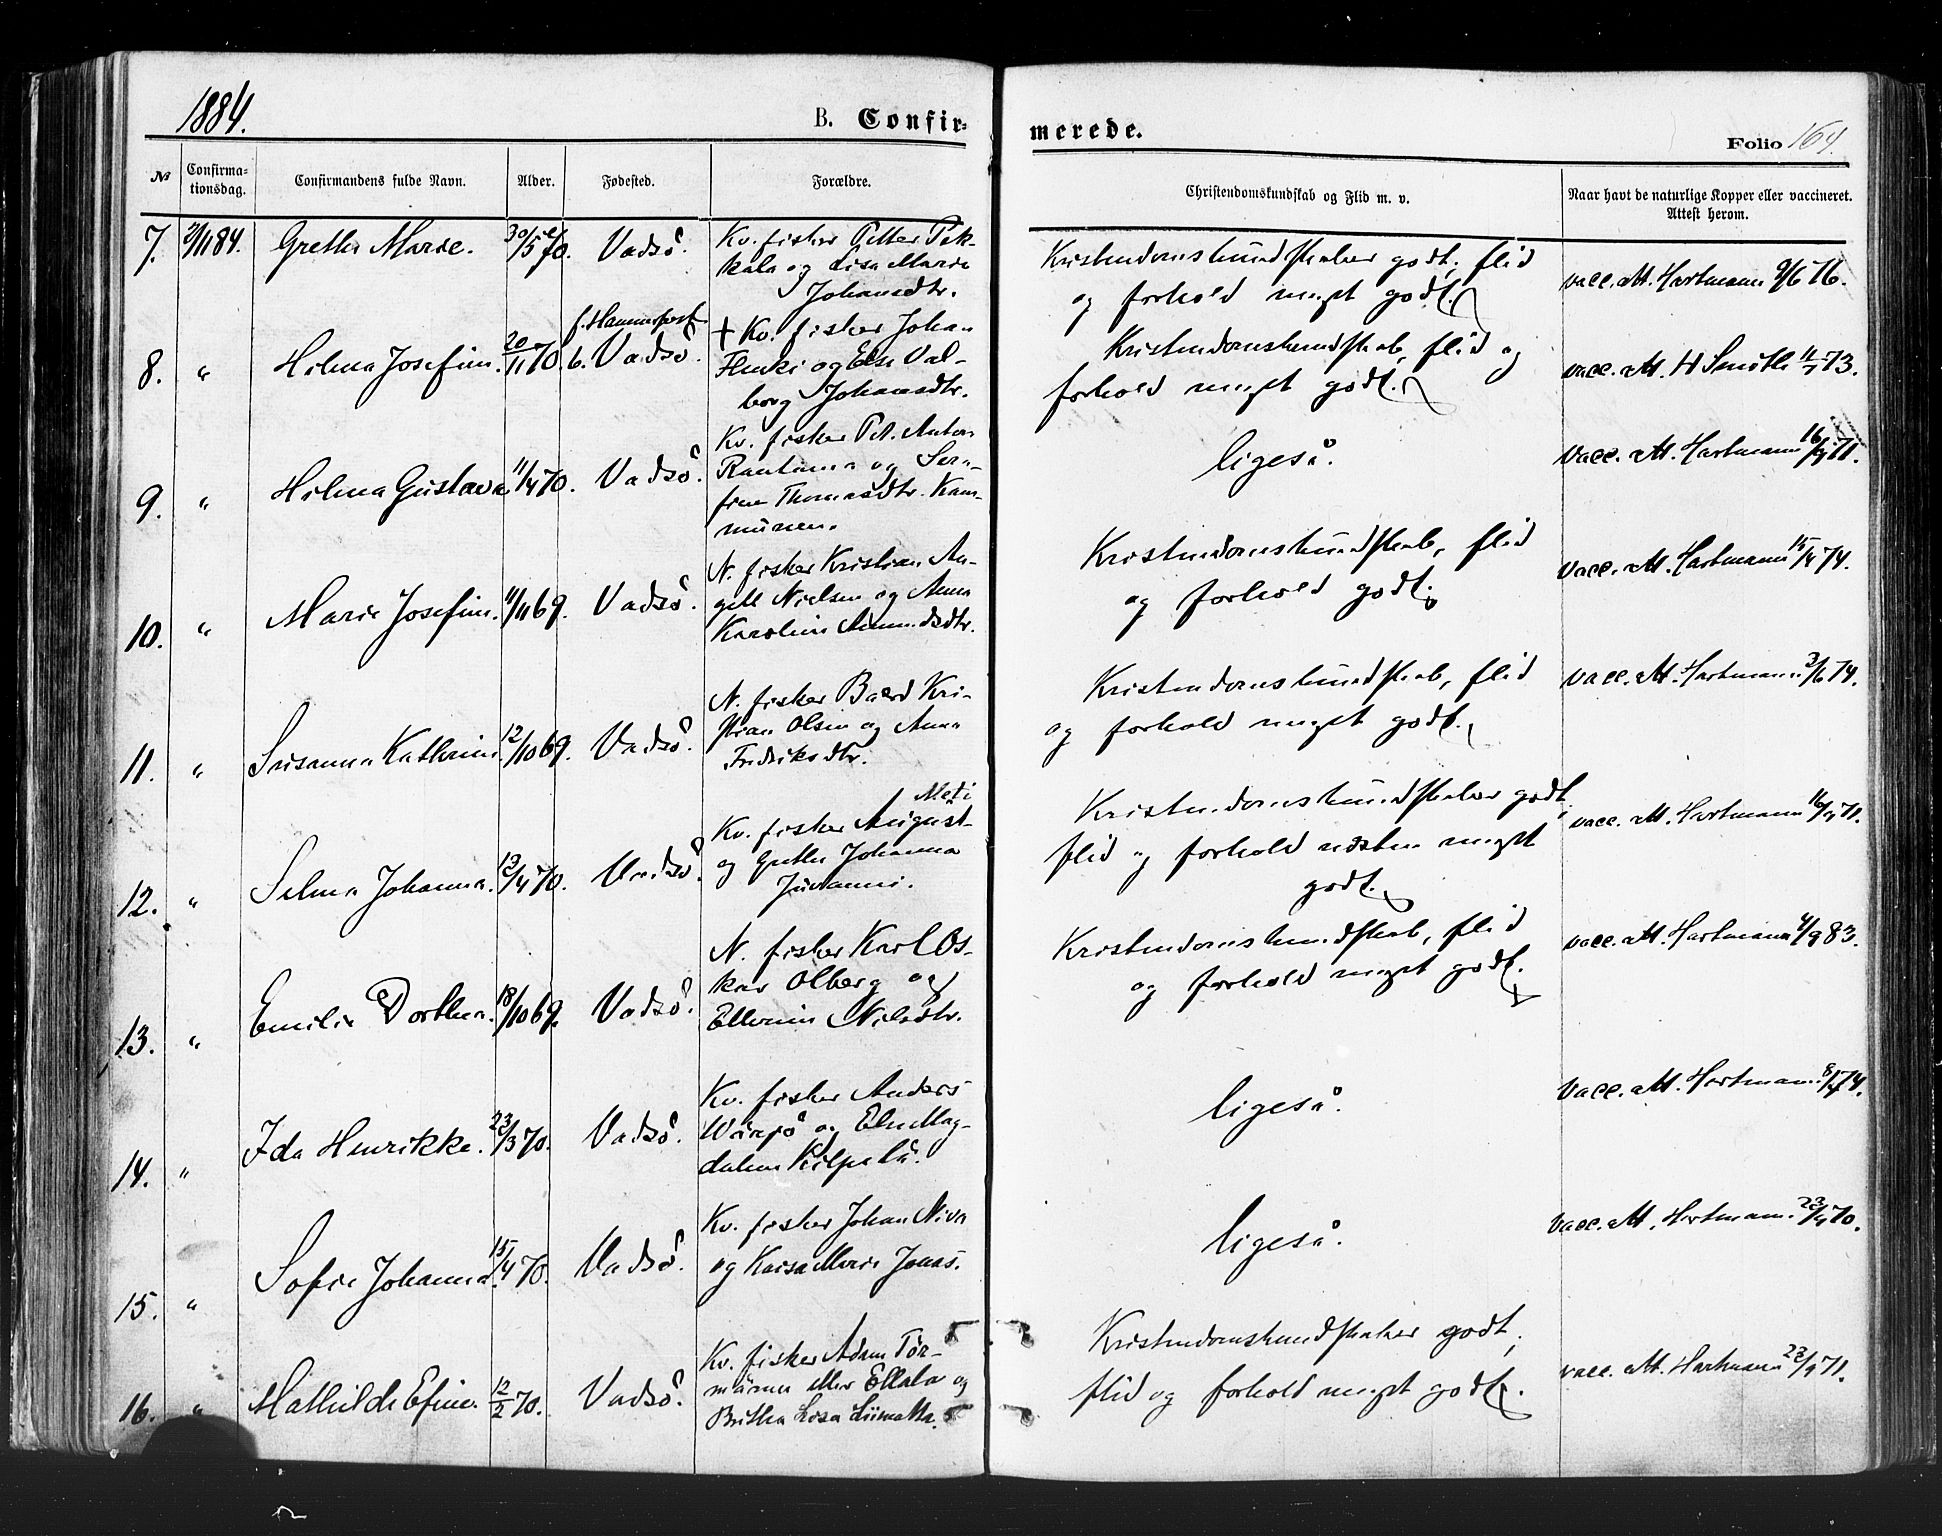 1884.
B. Confir-
merede.
Folio 164.
№
Confirma-
tionsdag.
Confirmandens fulde Navn.
Alder.
Fødested.
Forældre.
Christendomskundskab og Flid m. v.
Naar havt de naturlige Kopper eller vaccineret.
Attest herom.
7. 84. Grethe Marie. 30/5 70. Vadsö.
Kv. fisker Petter Pek-
kala og Lisa Marie
Johansdtr.
Kristendomskundskaber godt, flid
og forhold meget godt.
vacc. att. Hartmann 9/6 76.
8. " Hilma Josefine. 20/11 70. f. Hammerfest
b. Vadsö.
+ Kv. fisker Johan
og Else Val-
borg Johansdtr.
Kristendomskundskab, flid og
forhold meget godt.
vacc. att. H Smith 73.
9. " Hilma Gustava 11/4 70. Vadsö.
Kv. fisker Pet. Anton
Rantama og Sera-
fine Thomasdtr. Kam-
munen.
ligeså.
vacc. att. Hartmann 16/9 71.
10. " Marie Josefine. 11/11 69. Vadsö.
N. fisker Kristian An-
gell Nielsen og Anna
Karoline Amundsdtr.
Kristendomskundskab, flid
og forhold godt.
vacc. att. Hartmann 74.
11. " Susanna Kathrine. 12/10 69. Vadsö.
N. fisker Baard Kri-
stian Olsen og Anna
Fredriksdtr.
Kristendomskundskab, flid
og forhold meget godt.
vacc. att. Hartmann 3/6 74.
12. " Selma Johanna. 13/4 70. Vadsö.
Kv. fisker August
og Grethe Johanna
Kristendomskundskaber godt,
flid og forhold næsten meget
godt.
vacc. att. Hartmann 16/9 71.
13. " Emilie Dorthea. 18/10 69. Vadsö.
N. fisker Karl Os-
kar Olberg og
Ellevine Nilsdtr.
Kristendomskundskab, flid
og forhold meget godt.
vacc. att. Hartmann 4/9 83.
14. " Ida Henrikke. 23/3 70. Vadsö.
Kv. fisker Anders
og Else Mag-
dalena Kilpelä.
ligeså.
vacc. att. Hartmann 74.
15. " Sofie Johanna. 15/4 70. Vadsö.
Kv. fisker Johan Niva
og Kaisa Marie Jonas.
ligeså.
vacc. att. Hartmann. 70.
16. " Mathilde Efine. 12/2 70. Vadsö.
Kv. fisker Adam Tör-
mänen eller Ellala og
Britha Lisa Liimatta.
Kristendomskundskaber godt,
flid og forhold meget godt.
vacc. att. Hartmann 23/9 71.